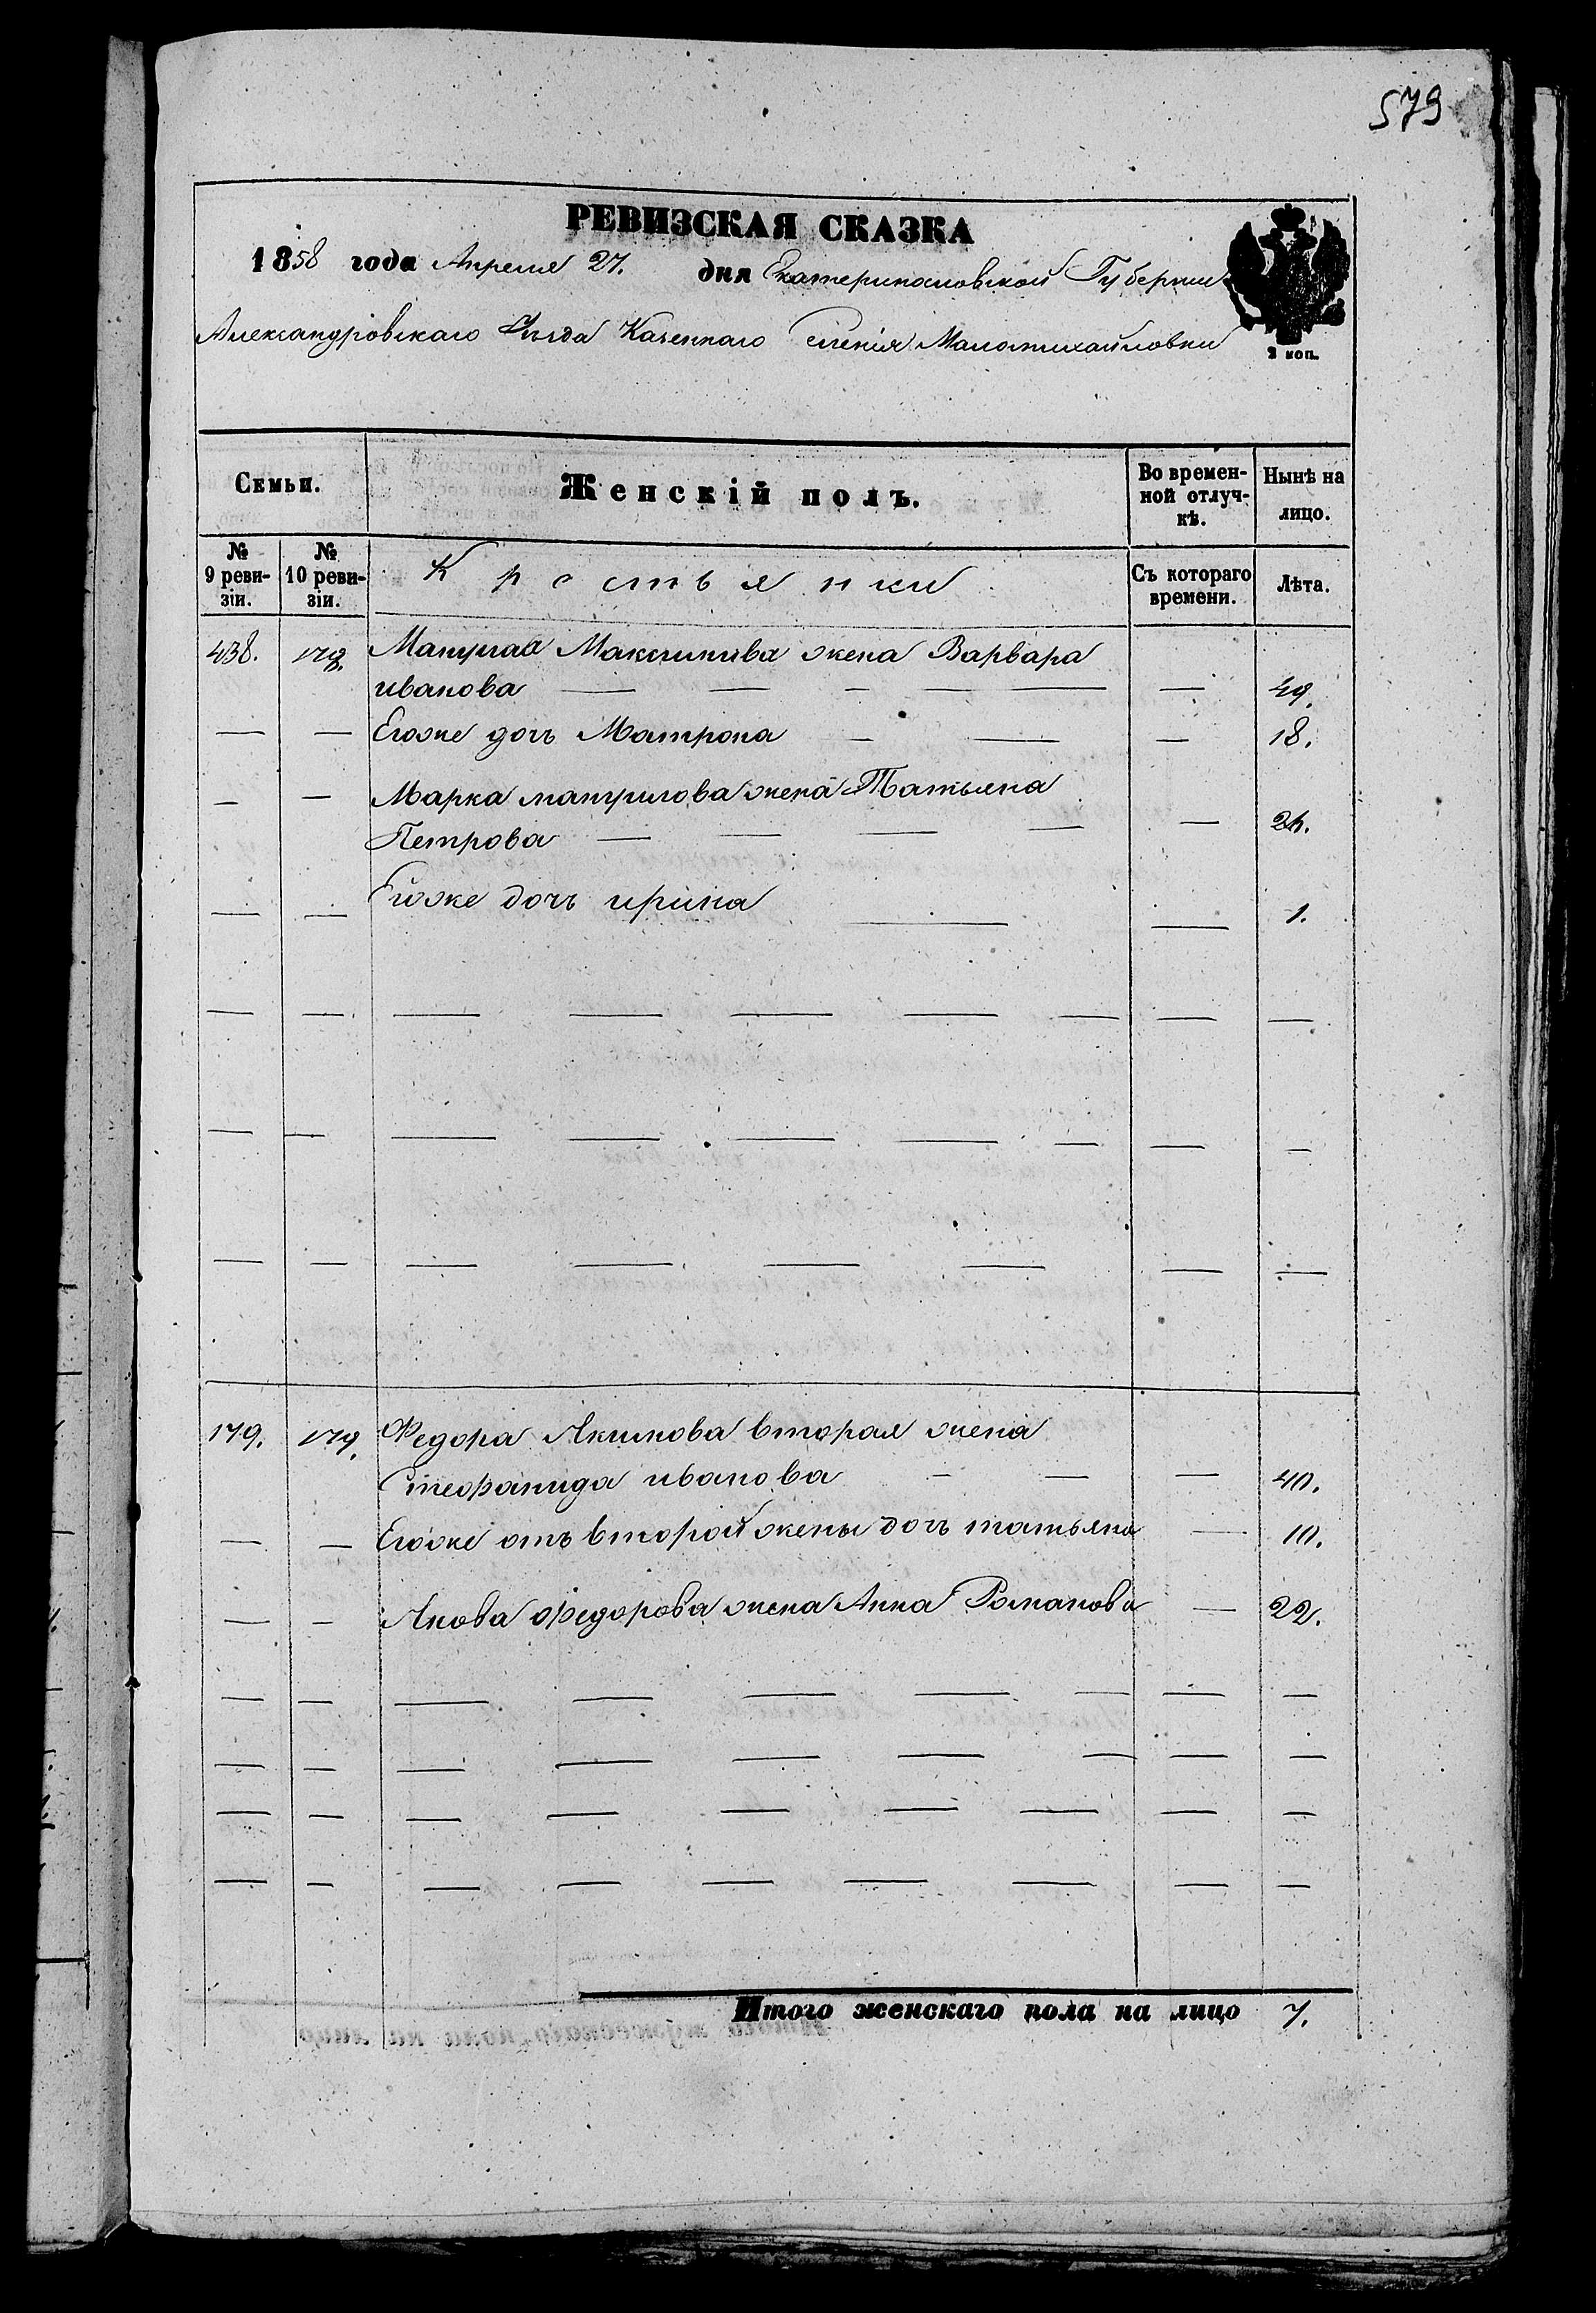 579
РЕВИЗСКАЯ СКАЗКА
1858 года Апреля 27. дня Екатеринославской Губернии
Александровскаго Уѣзда Казеннаго селенія Маломихайловки
2 коп.
Семьи. Женскій полъ. Во времен-ной отлуч-кѣ. Нынѣ на лицо.
№ 9 реви-зіи. № 10 реви-зіи. Крестьянки Съ котораго времени. Лѣта.
438. 178. Мануила Максимова жена Варвара
иванова — — — — — — 49.
— — Егоже дочь Матрона — — — 18.
— — Марка мануилова жена Татьяна
Петрова — — — — —
— — Егоже дочь ирина — — 1.
179. 179. Федора Акимова вторая жена
Стефанида иванова — — — 40.
— — Егоже отъ второй жены дочь татьяна — 10.
— — Якова федорова жена Анна Романова — 22.
Итого женскаго пола на лицо 7.